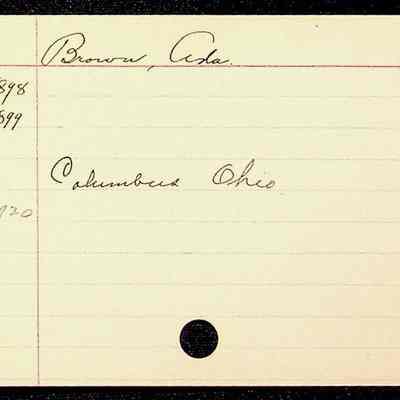 Brown, Ada.
898
899
Columbus Ohio
720